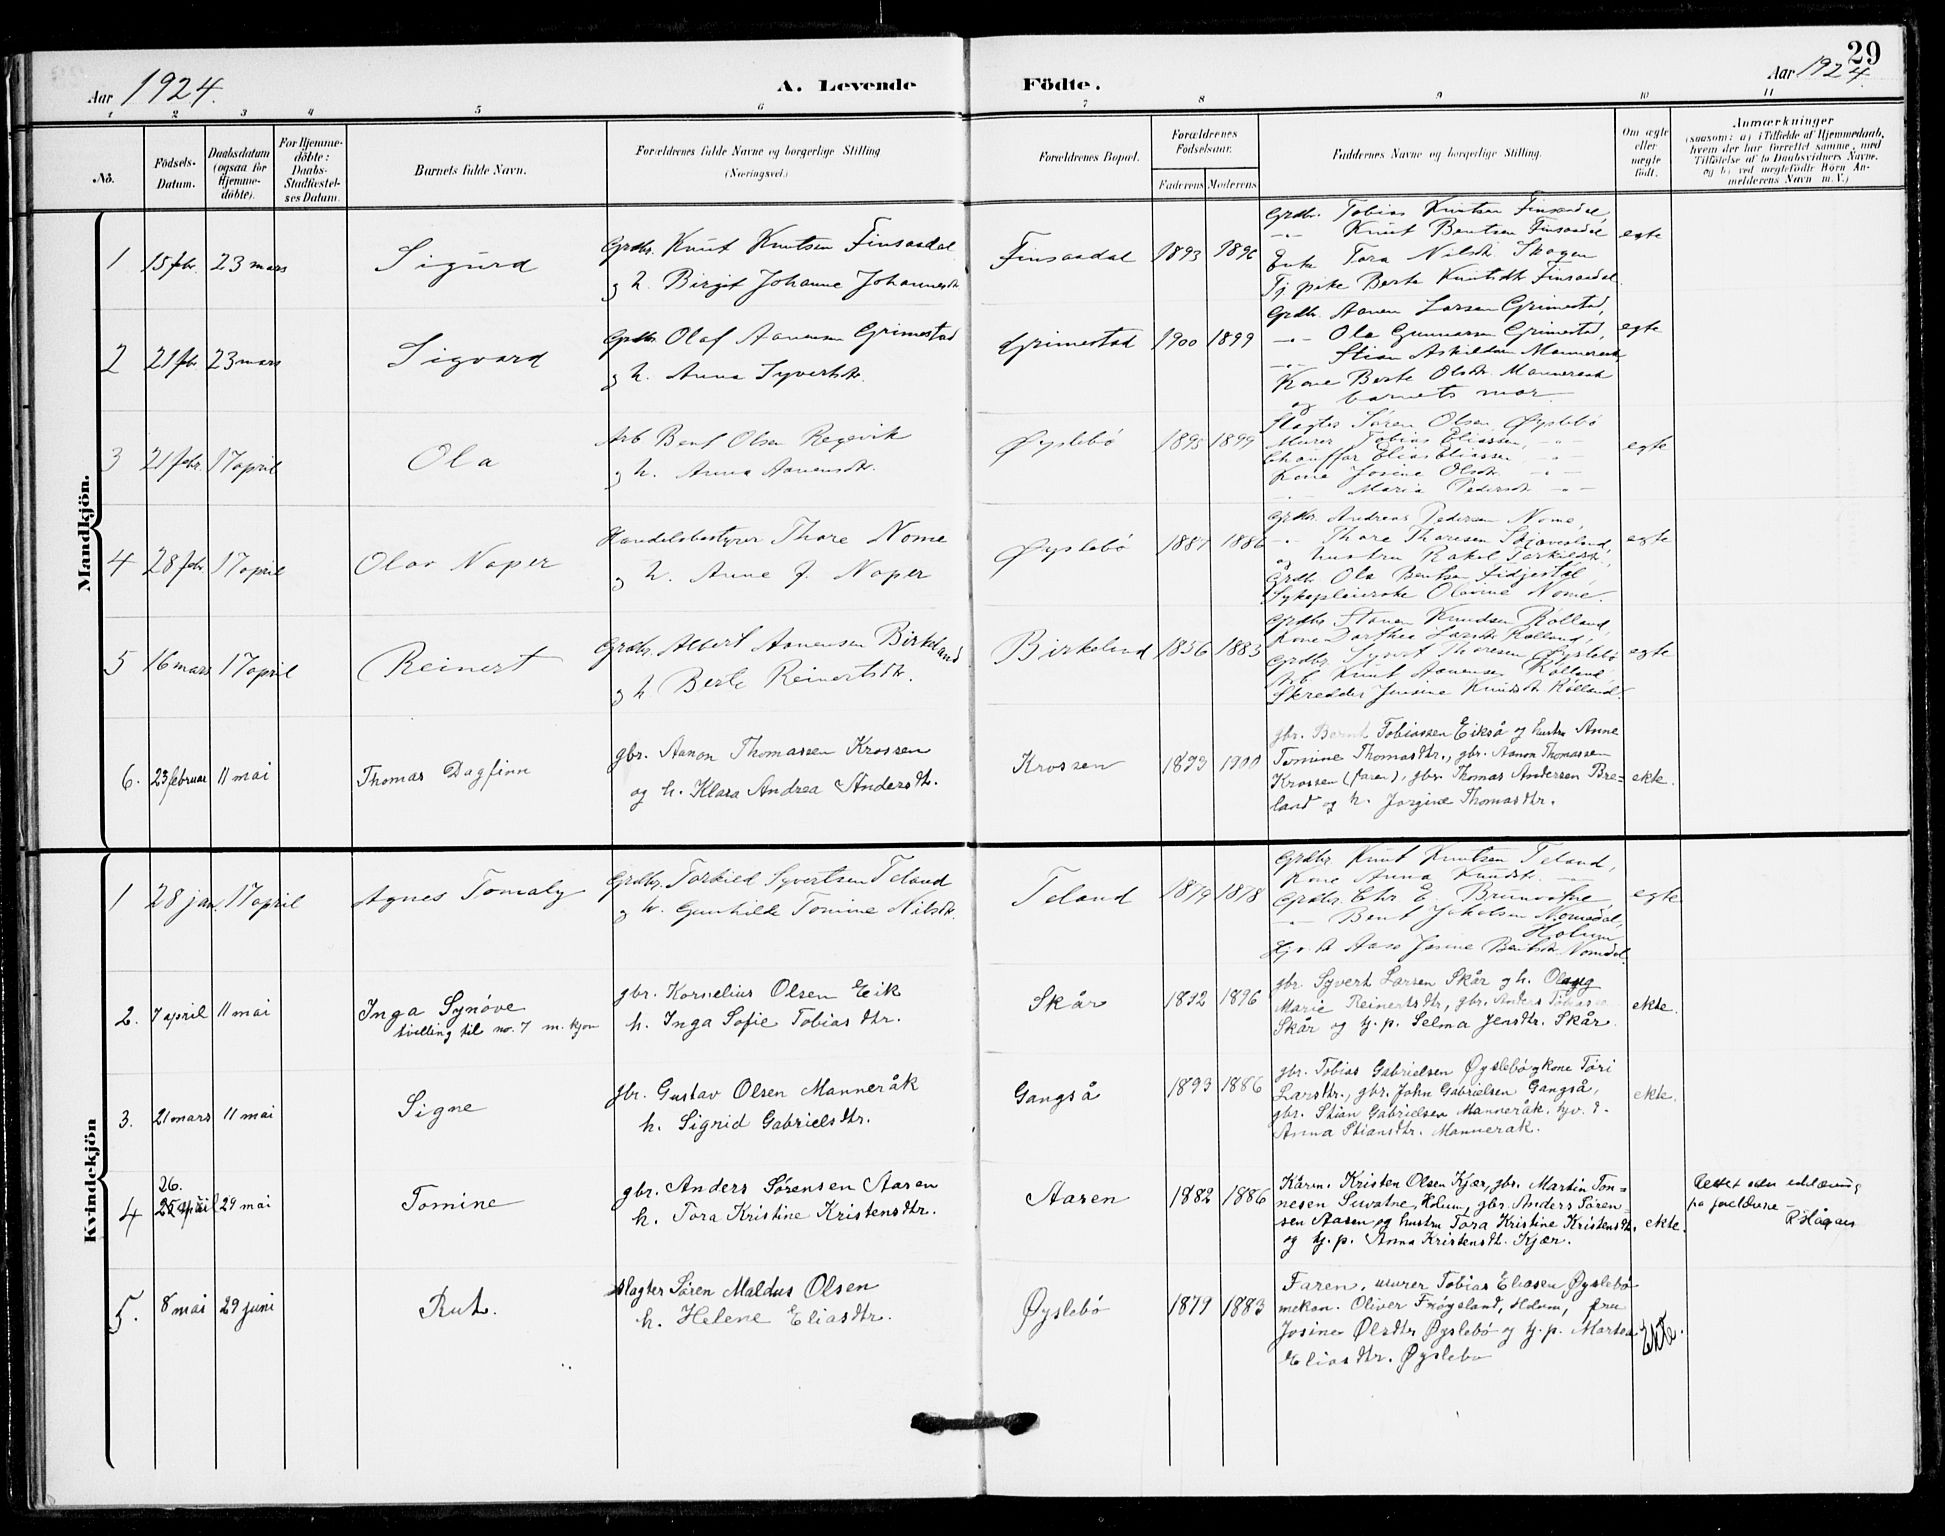 29
Aar 1924.
A. Levende
Födte.
Aar 1924
1 2 3 4 5 6 7 8 9 10 11
No.
Födsels-
Datum.
Daabsdatum
(ogsaa for
Hjemme-
döbte).
For Hjemme-
döbte:
Daabs-
Stadfæstel-
ses Datum.
Barnets fulde Navn.
Forældrenes fulde Navne og borgerlige Stilling
(Næringsvei.)
Forældrenes Bopæl.
Forældrenes
Födselsaar.
Faderens Moderens
Faddernes Navne og borgerlige Stilling.
Om ægte
eller
uægte
födt.
Anmærkninger
(saasom: a) i Tilfælde af Hjemmedaab,
hvem der har forrettet samme, med
Tilföielse af to Daabsvidners Navne.
og b) ved uægtefödte Börn An-
melderens Navn m. V.)
Mandkjön.
1 15 febr. 23 mars
Sigurd
Grdbr. Knut Knutsen Finsaadal
og h. Birgit Johanne Johannesdtr.
Finsaadal 1893 1896
Grdbr. Tobias Knutsen Finsaadal,
-"- Knut Bentsen Finsaadal
Enke Tora Nilsdtr. Skogen
Tj. pike Berte Knutsdtr Finsaadal
egte
2 21 febr 23 mars
Sigvard
Grdbr. Olaf Aanensen Grimestad
og h. Anna Syvertsdtr.
Grimestad 1900 1899
Grdbr. Aanen Larsen Grimestad,
-"- Ola Gunnarsen Grimestad,
-"- Stian Askildsen Mannerak
Kone Berte Olsdtr. Mannerak
og barnets mor.
egte
3 21 febr. 17 april
Ola
Arb Bent Olsen Regevik
og h. Anna Aanensdtr.
Øyslebö 1895 1899
Slagter Sören Olsen Øyslebö
Murer Tobias Eliassen, -"-
Chauffør Elias Eliassen -"-
Kone Josine Olsdtr. -"-
-"- Maria Pedersdtr. -"-
egte
4 28 febr. 17 april
Olav Noper
Handelsbestyrer Thore Nome
og h. Anne J. Noper
Øyslebö 1887 1886
Grdbr. Andreas Pedersen Nome,
-"- Thore Thoresen
og hustru Rakel Terkildsdtr.,
Grdbr. Ola Bentsen Fidjestøl,
Sykepleierske Olovine Nome.
egte
5 16 mars 17 april
Reinert
Grdbr. Albert Aanensen Birkeland
og h. Berte Reinertsdtr.
Birkeland 1856 1883
Grdbr. Stenen Knudsen Rölland,
Kone Dorthea Larsdtr. Rölland,
Grdbr. Syvert Thoresen Øyslebö
Arb. Knut Aanensen Rölland,
Skredder Jensine Knudsdtr. Rölland.
egte
6. 23 februar 11 mai
Thomas Dagfinn
gbr. Aanon Thomassen Krossen
og h. Klara Andrea Andersdtr.
Krossen 1899 1900
gbr. Bernt Tobiassen Eikså og hustru Anne
Tomine Thomasdtr., gbr. Aanon Thomassen
Krossen (faren), gbr. Thomas Andersen Bre-
land og h. Jorgine Thomasdtr.
ekte.
Kvindekjön
1 28 jan. 17 april
Agnes Tomaly
Grdbr. Torkild Syvertsen Teland
og h. Gunhilde Tomine Nilsdtr.
Teland 1879 1878
Grdbr. Knut Knutsen Teland,
Kone Anna Knudsdtr. -"-
Grdbr. Chr. E. Brunvatne,
-"- Bent Jakobsen Nomedal,
Holum
Hjv. d. Aase Josine Bentsdtr. Nomedal.
egte
2. 7 april 11 mai
Inga Synöve
tvilling til no. 7 m. kjøn
gbr. Kornelius Olsen Eik
h. Inga Sofie Tobiasdtr.
Skår 1892 1896
gbr. Syvert Larsen Skår og h. Olaug
Marie Reinertsdtr, gbr. Anders Tobiassen
Skår og tj. p. Selma Jensdtr. Skår.
ekte.
3. 21 mars 11 mai
Signe
gbr. Gustav Olsen Manneråk
h. Sigrid Gabrielsdtr.
Gangså 1893 1886
gbr. Tobias Gabrielsen Øyslebö og kone Töri
Larsdtr., gbr. John Gabrielsen Gangså,
gbr. Stian Gabrielsen Manneråk, hjv. d.
Anna Stiansdtr. Mannerak.
ekte.
26.
4 25 april 29 mai
Tomine
gbr. Anders Sørensen Aasen
h. Tora Kristine Kristensdtr.
Aasen 1882 1886
Kårm. Kristen Olsen Kjær, gbr. Martin Ton-
nesen Suvatne, Holum, gbr. Anders Sören-
sen Aasen og hustru Tora Kristine Kristensdtr.
og tj. p. Anna Kristensdtr. Kjær.
ekte.
Rettet efter erklæring
fra foreldrene
5. 8 mai 29 juni
Rut.
slagter Sören Maldus Olsen
h. Helene Eliasdtr.
Øyslebö 1879 1883
Faren, murer Tobias Eliasen Øyslebö
mekan. Oliver Frøysland, Holum, fru
Josine Olsdtr Øyslebö og tj. p. Martea
Eliasdtr. Øyslebö
Ekte.